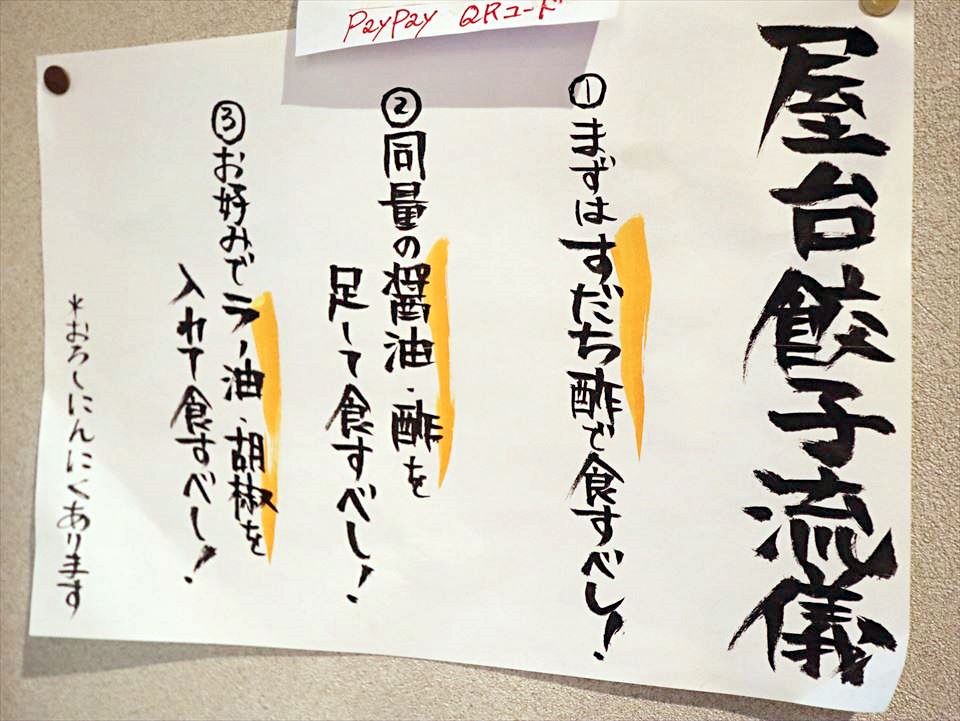 PayPay QRコード
屋台餃子流儀
①まずはすだち酢で食すべし!
②同量の醤油・酢を
足して食すべし!
③お好みでラー油・胡椒を
入れて食すべし!
*おろしにんにくあります